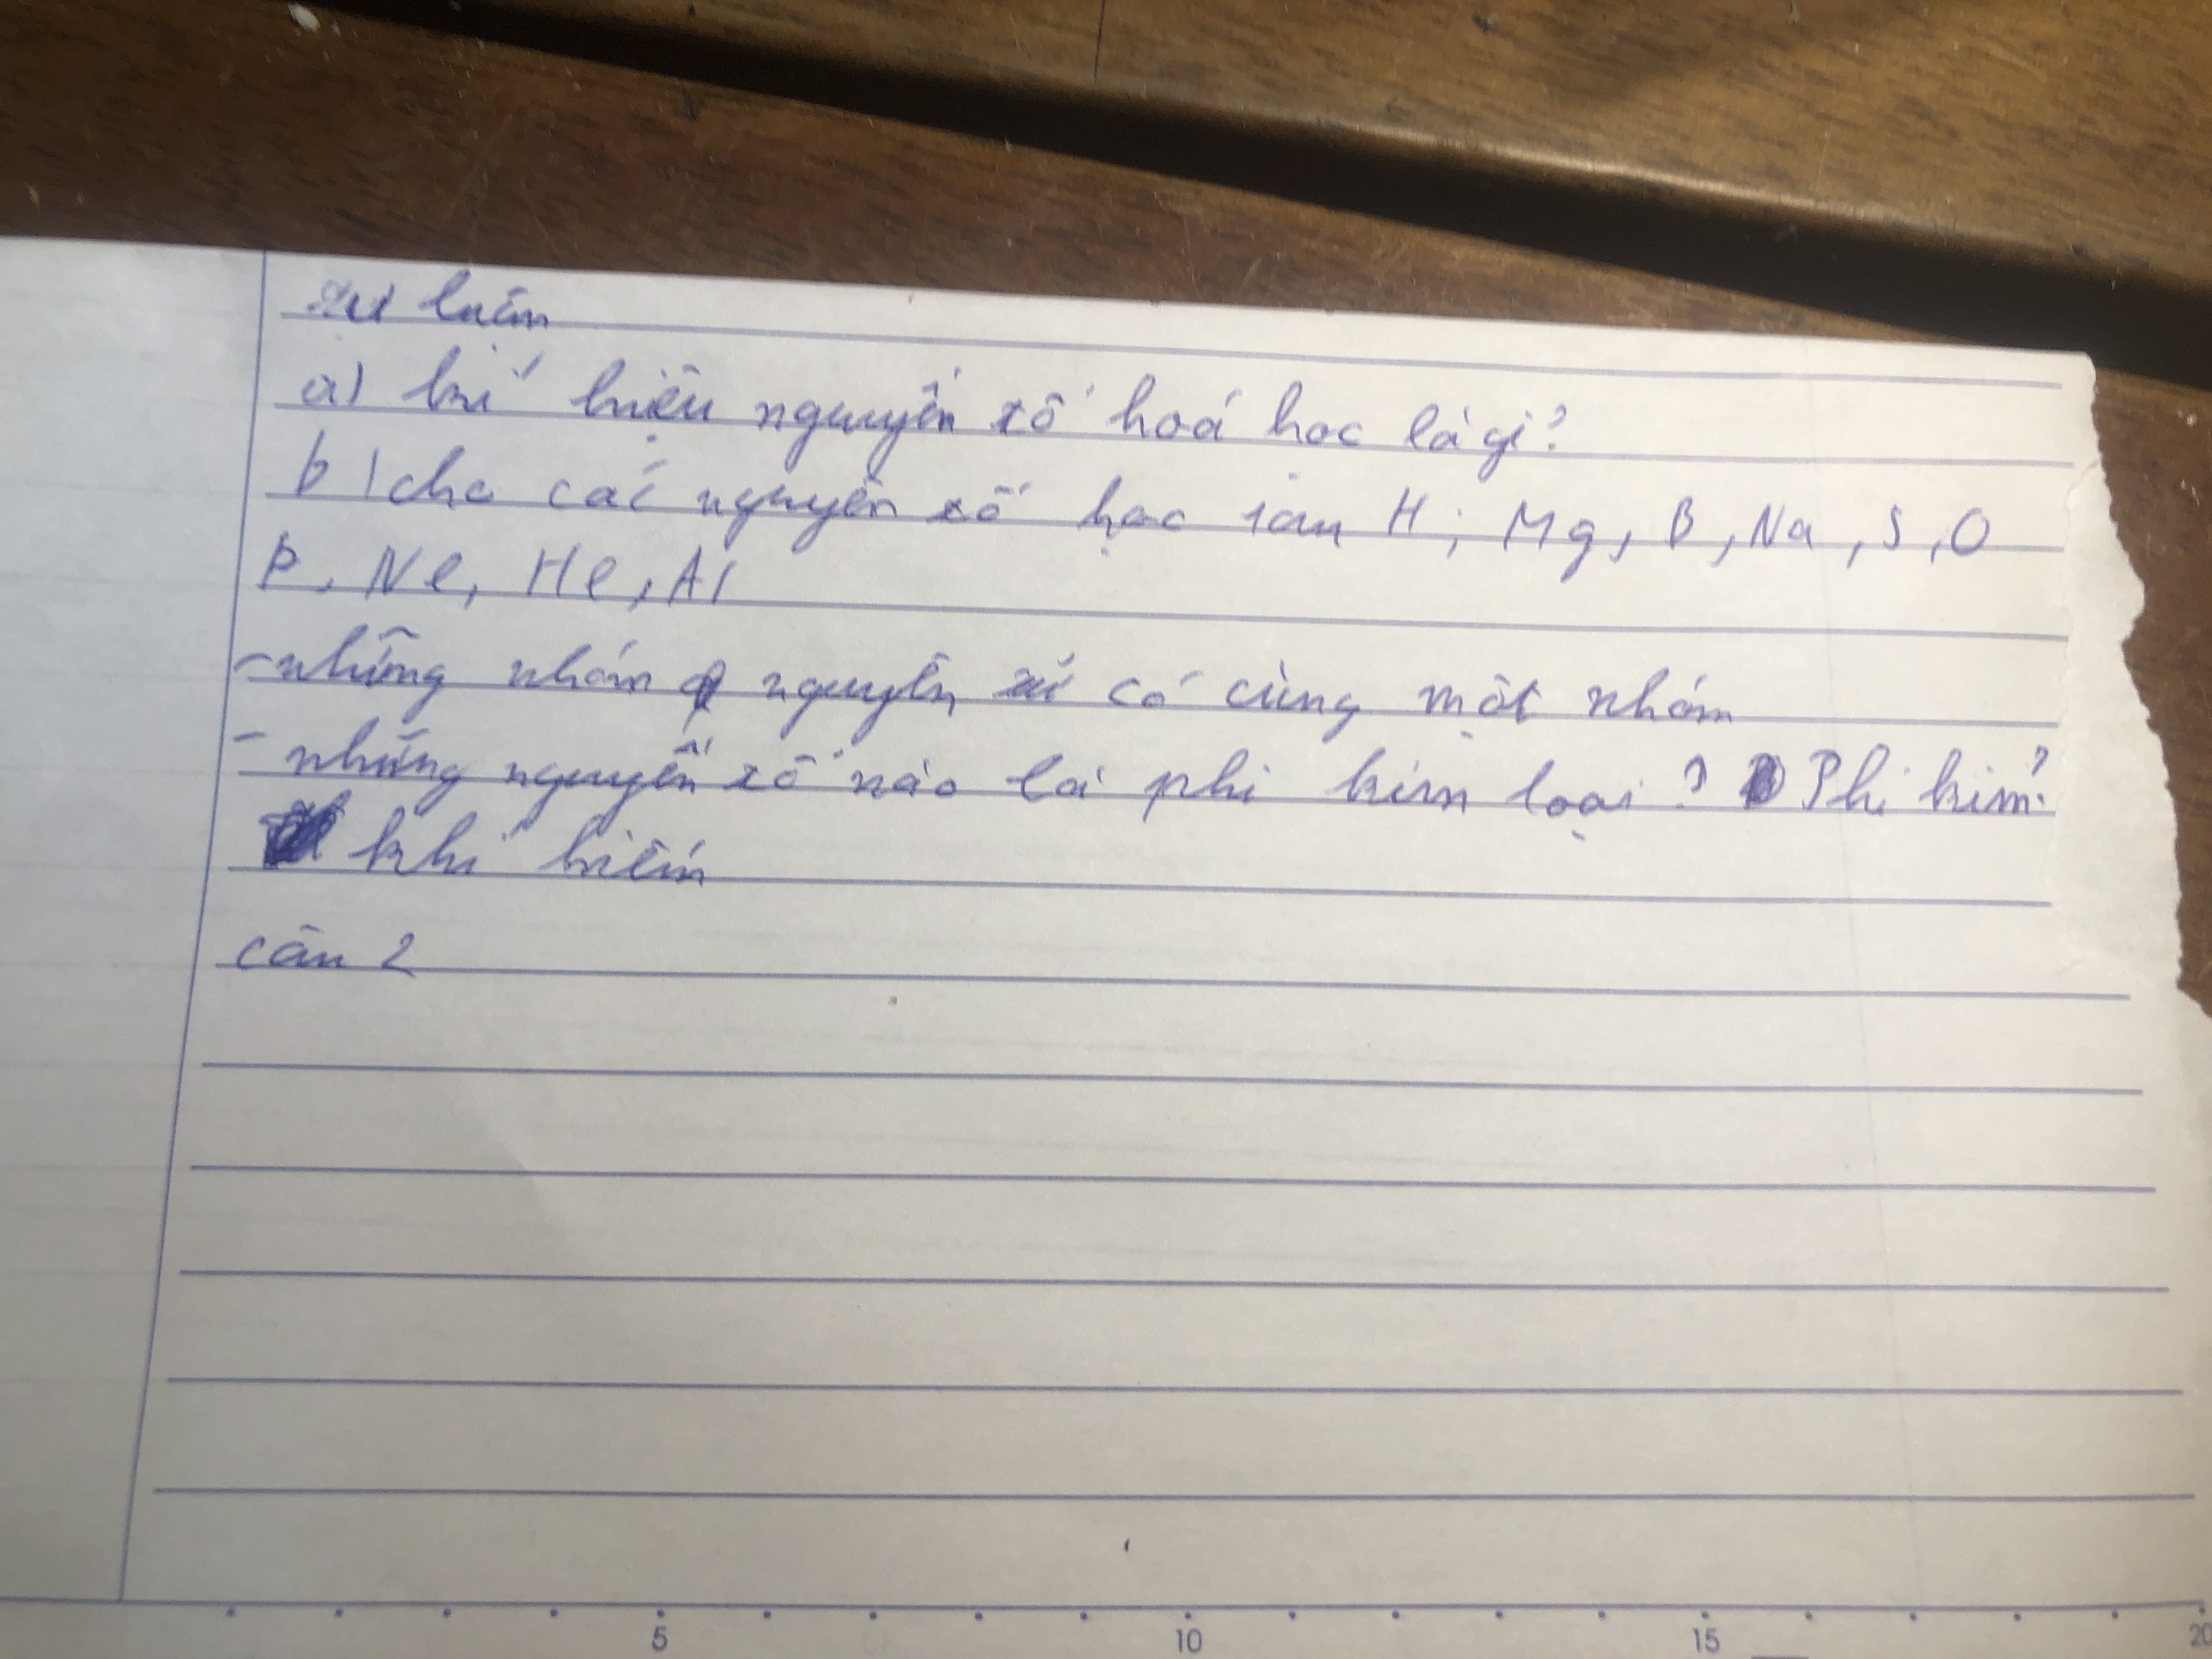 tự luận
a) kí hiệu nguyên tố hoá học là gì?
b) cho các nguyên tố học sau H; Mg, B, Na, S, O
P, Ne, He, Al
- những nhóm nguyên tố có cùng một nhóm
- những nguyên tố nào là phi kim loại? Phi kim?
khí hiếm
câu 2
5 10 15 20